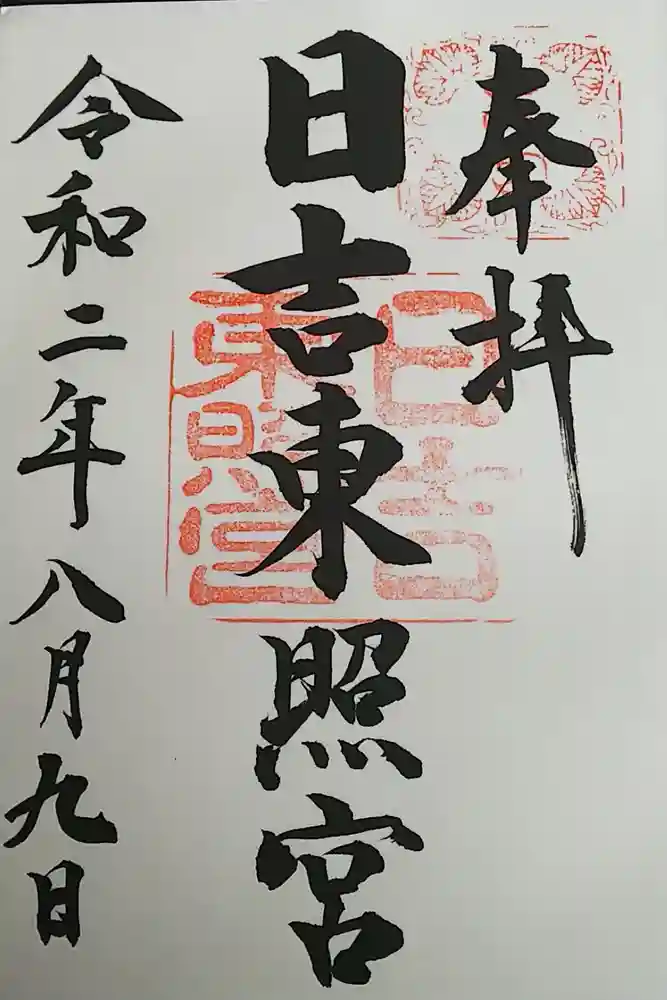 奉拝
日吉東照宮
日吉
東照宮
令和二年八月九日